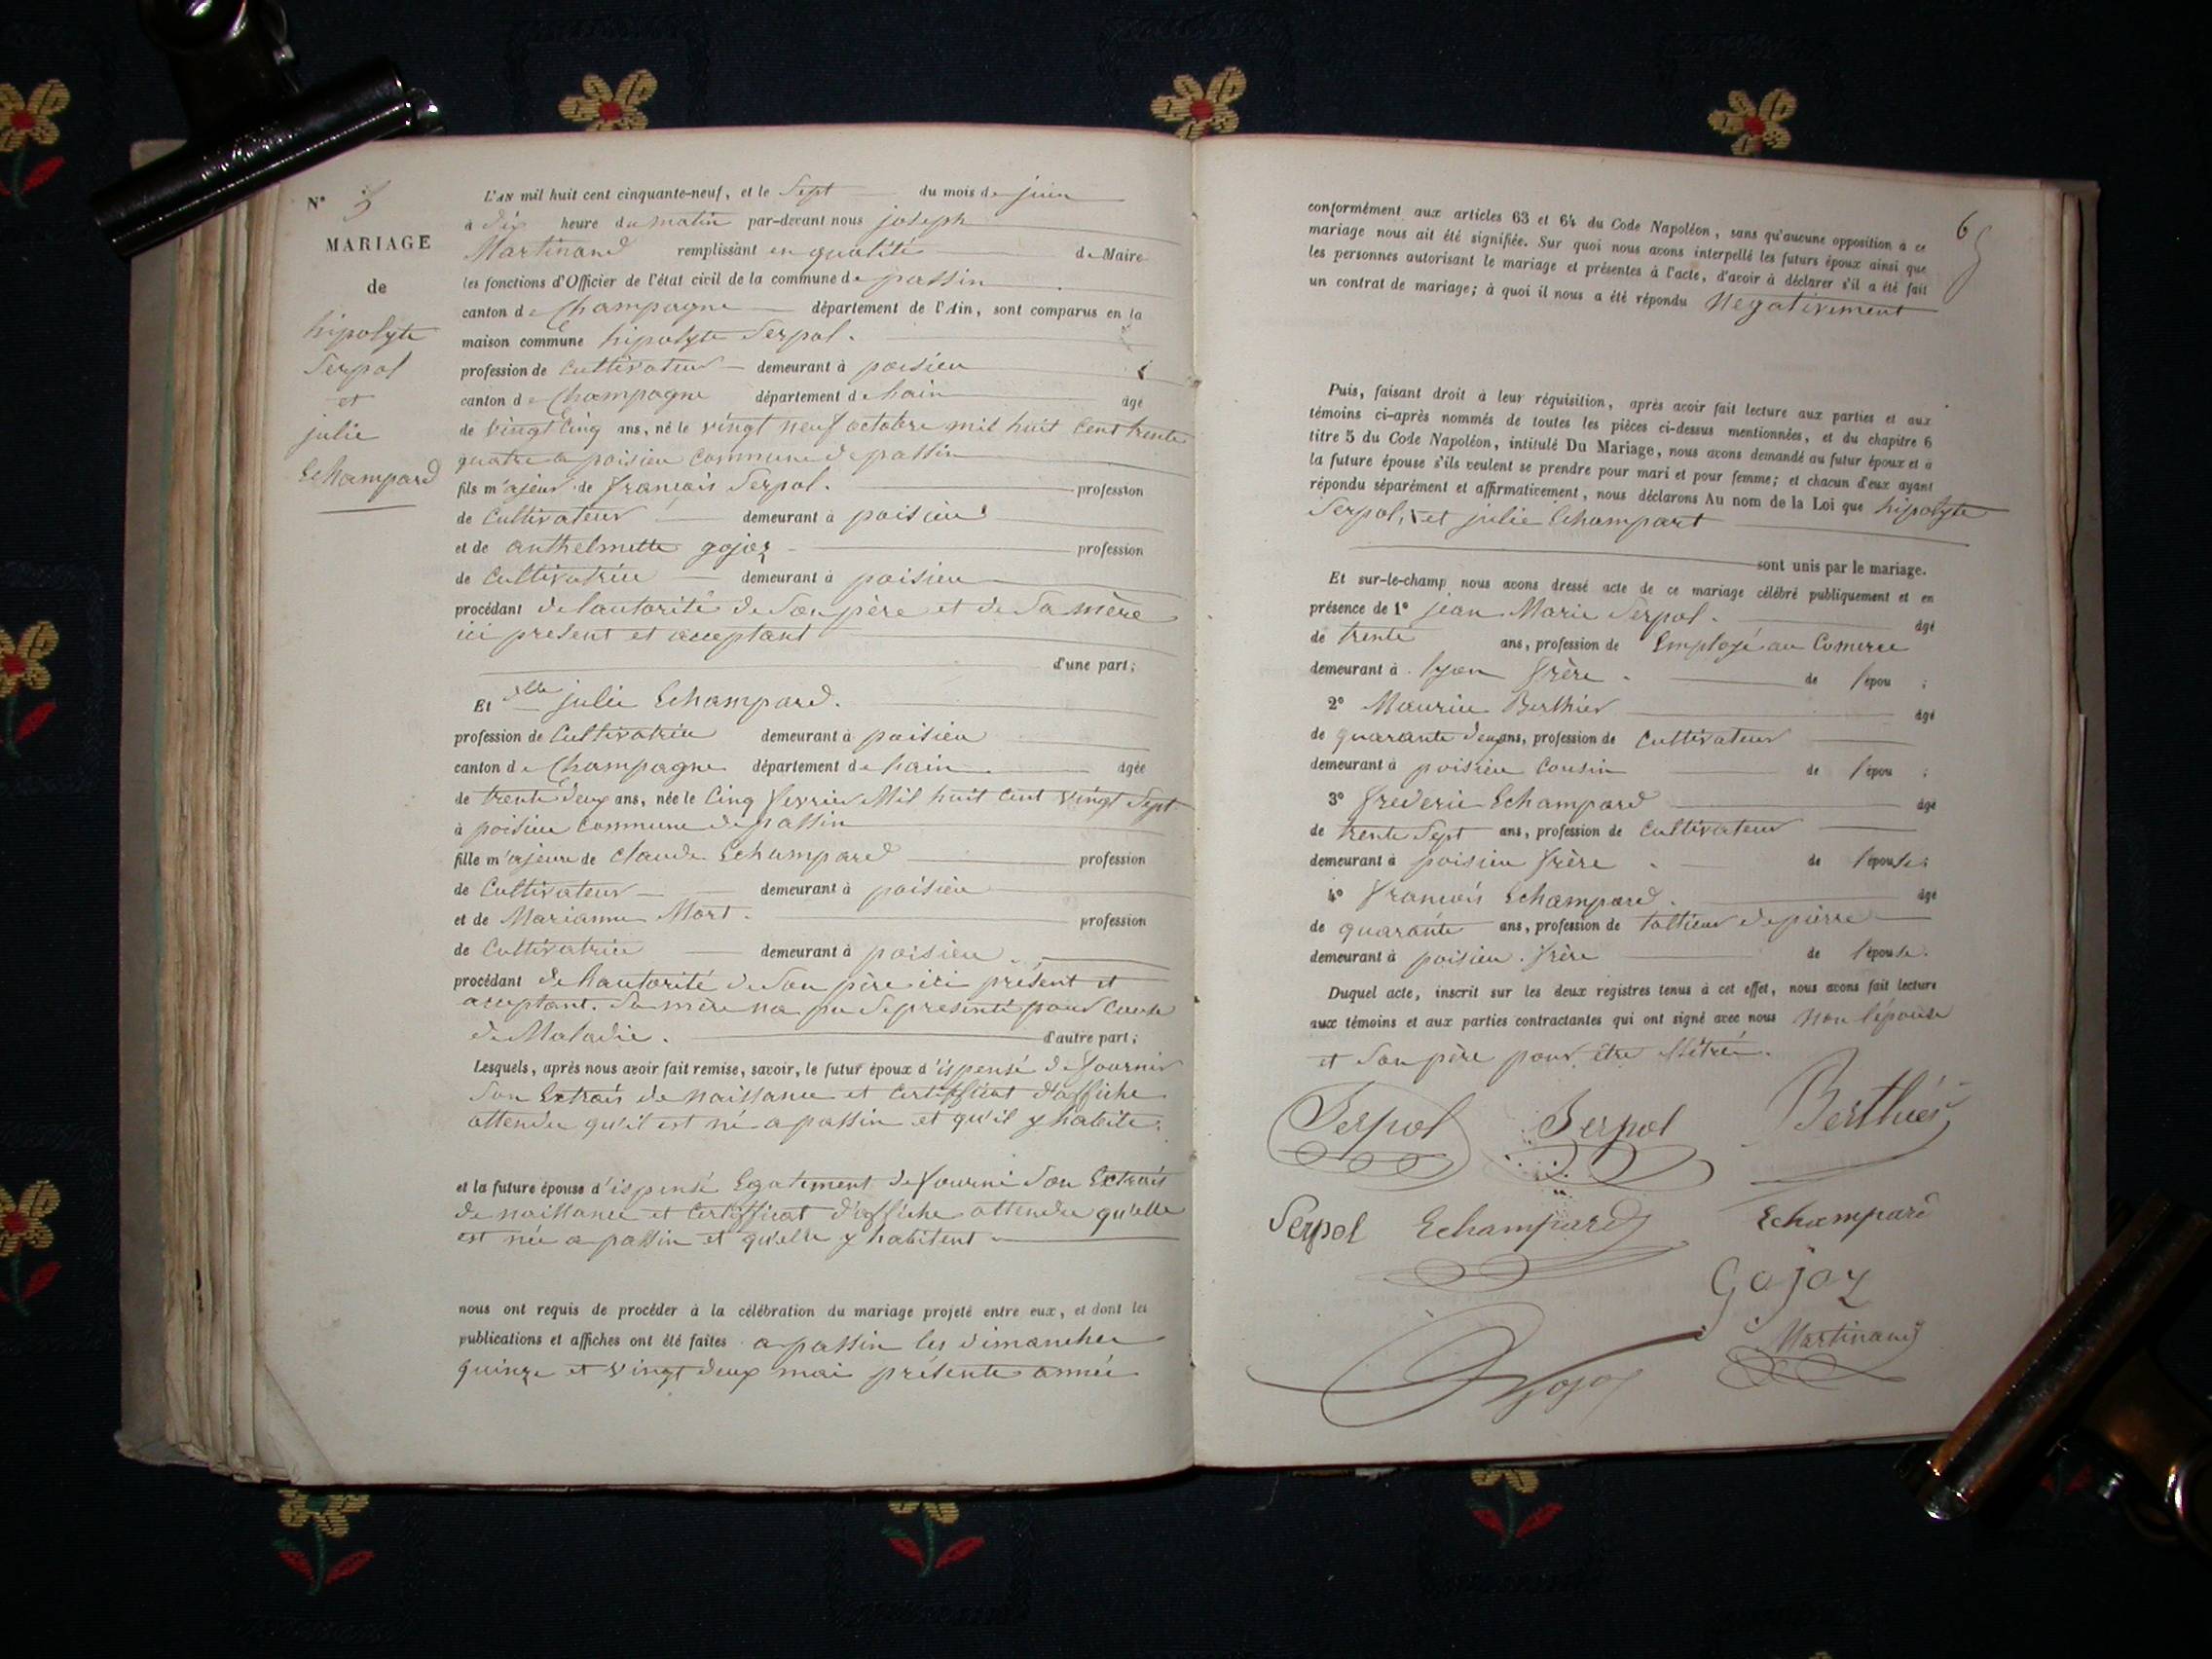 N° 3
MARIAGE
de
hipolyte
Serpol
et
julie
Echampard
L'AN mil huit cent cinquante-neuf, et le Sept du mois de juin
à dix heure du matin par-devant nous joseph
Martinand remplissant en qualité de Maire
les fonctions d'Officier de l'état civil de la commune de passin
canton de Champagne département de l'Ain, sont comparus en la
maison commune hipolyte Serpol.
profession de Cultivateur demeurant à poisieu
canton de Champagne département de hain âgé
de vingt Cinq ans, né le vingt neuf octobre mil huit Cent trente
quatre a poisieu Commune de passin
fils majeur de françois Serpol. profession
de Cultivateur demeurant à poisieu
et de anthelmette gojoz profession
de Cultivatrice demeurant à poisieu
procédant de lautorité de Son père et de Sa mère
ici présent et acceptant
d'une part;
Et dlle julie Echampard.
profession de Cultivatrice demeurant à poisieu
canton de Champagne département de hain âgée
de trente deux ans, née le Cinq fevrier Mil huit Cent vingt Sept
à poisieu Commune de passin
fille majeure de Claude Echampard profession
de Cultivateur demeurant à poisieu
et de Marianne Mort. profession
de Cultivatrice demeurant à poisieu.
procédant de hautorité de Son père ici présent et
acceptant. Sa mère na pu Se presenté pour Cause
de Maladie. d'autre part;
Lesquels, après nous avoir fait remise, savoir, le futur époux dispensé de fournir
Son Extrais de naissance et Certifficat d'affiche
attendu qu'il est né a passin et qu'il y habite.
et la future épouse dispensé Egatement de fourni Son Extrais
de naissance et Certifficat d'affiche attendu qu'elle
est née a passin et qu'elle y habitent
nous ont requis de procéder à la célébration du mariage projeté entre eux, et dont les
publications et affiches ont été faites a passin les dimanches
quinze et vingt deux mai présente année
6
conformément aux articles 63 et 64 du Code Napoléon, sans qu'aucune opposition à ce
mariage nous ait été signifiée. Sur quoi nous avons interpellé les futurs époux ainsi que
les personnes autorisant le mariage et présentes à l'acte, d'avoir à déclarer s'il a été fait
un contrat de mariage; à quoi il nous a été répondu Negativement
Puis, faisant droit à leur réquisition, après avoir fait lecture aux parties et aux
témoins ci-après nommés de toutes les pièces ci-dessus mentionnées, et du chapitre 6
titre 5 du Code Napoléon, intitulé Du Mariage, nous avons demandé au futur époux et à
la future épouse s'ils veulent se prendre pour mari et pour femme; et chacun d'eux ayant
répondu séparément et affirmativement, nous déclarons Au nom de la Loi que hipolyte
Serpol, et julie Echampart
sont unis par le mariage.
Et sur-le-champ nous avons dressé acte de ce mariage célébré publiquement et en
présence de 1° jean Marie Serpol. âgé
de trente ans, profession de Employé au Comerce
demeurant à lyon frère. de l'épou ;
2° Maurice Berthier âgé
de quarante deux ans, profession de Cultivateur
demeurant à poisieu Cousin de l'épou ;
3° frederic Echampard âgé
de trente Sept ans, profession de Cultivateur
demeurant à poisieu frère de l'épouse;
4° françois Echampard. âgé
de quarante ans, profession de tallieur de pierre
demeurant à poisieu. frère de l'épouse.
Duquel acte, inscrit sur les deux registres tenus à cet effet, nous avons fait lecture
aux témoins et aux parties contractantes qui ont signé avec nous Non l'épouse
et Son père pour être illétrée.
Serpol Serpol Berthier
Serpol Echampard Echampard
Gojoz
Martinand
Gojoz